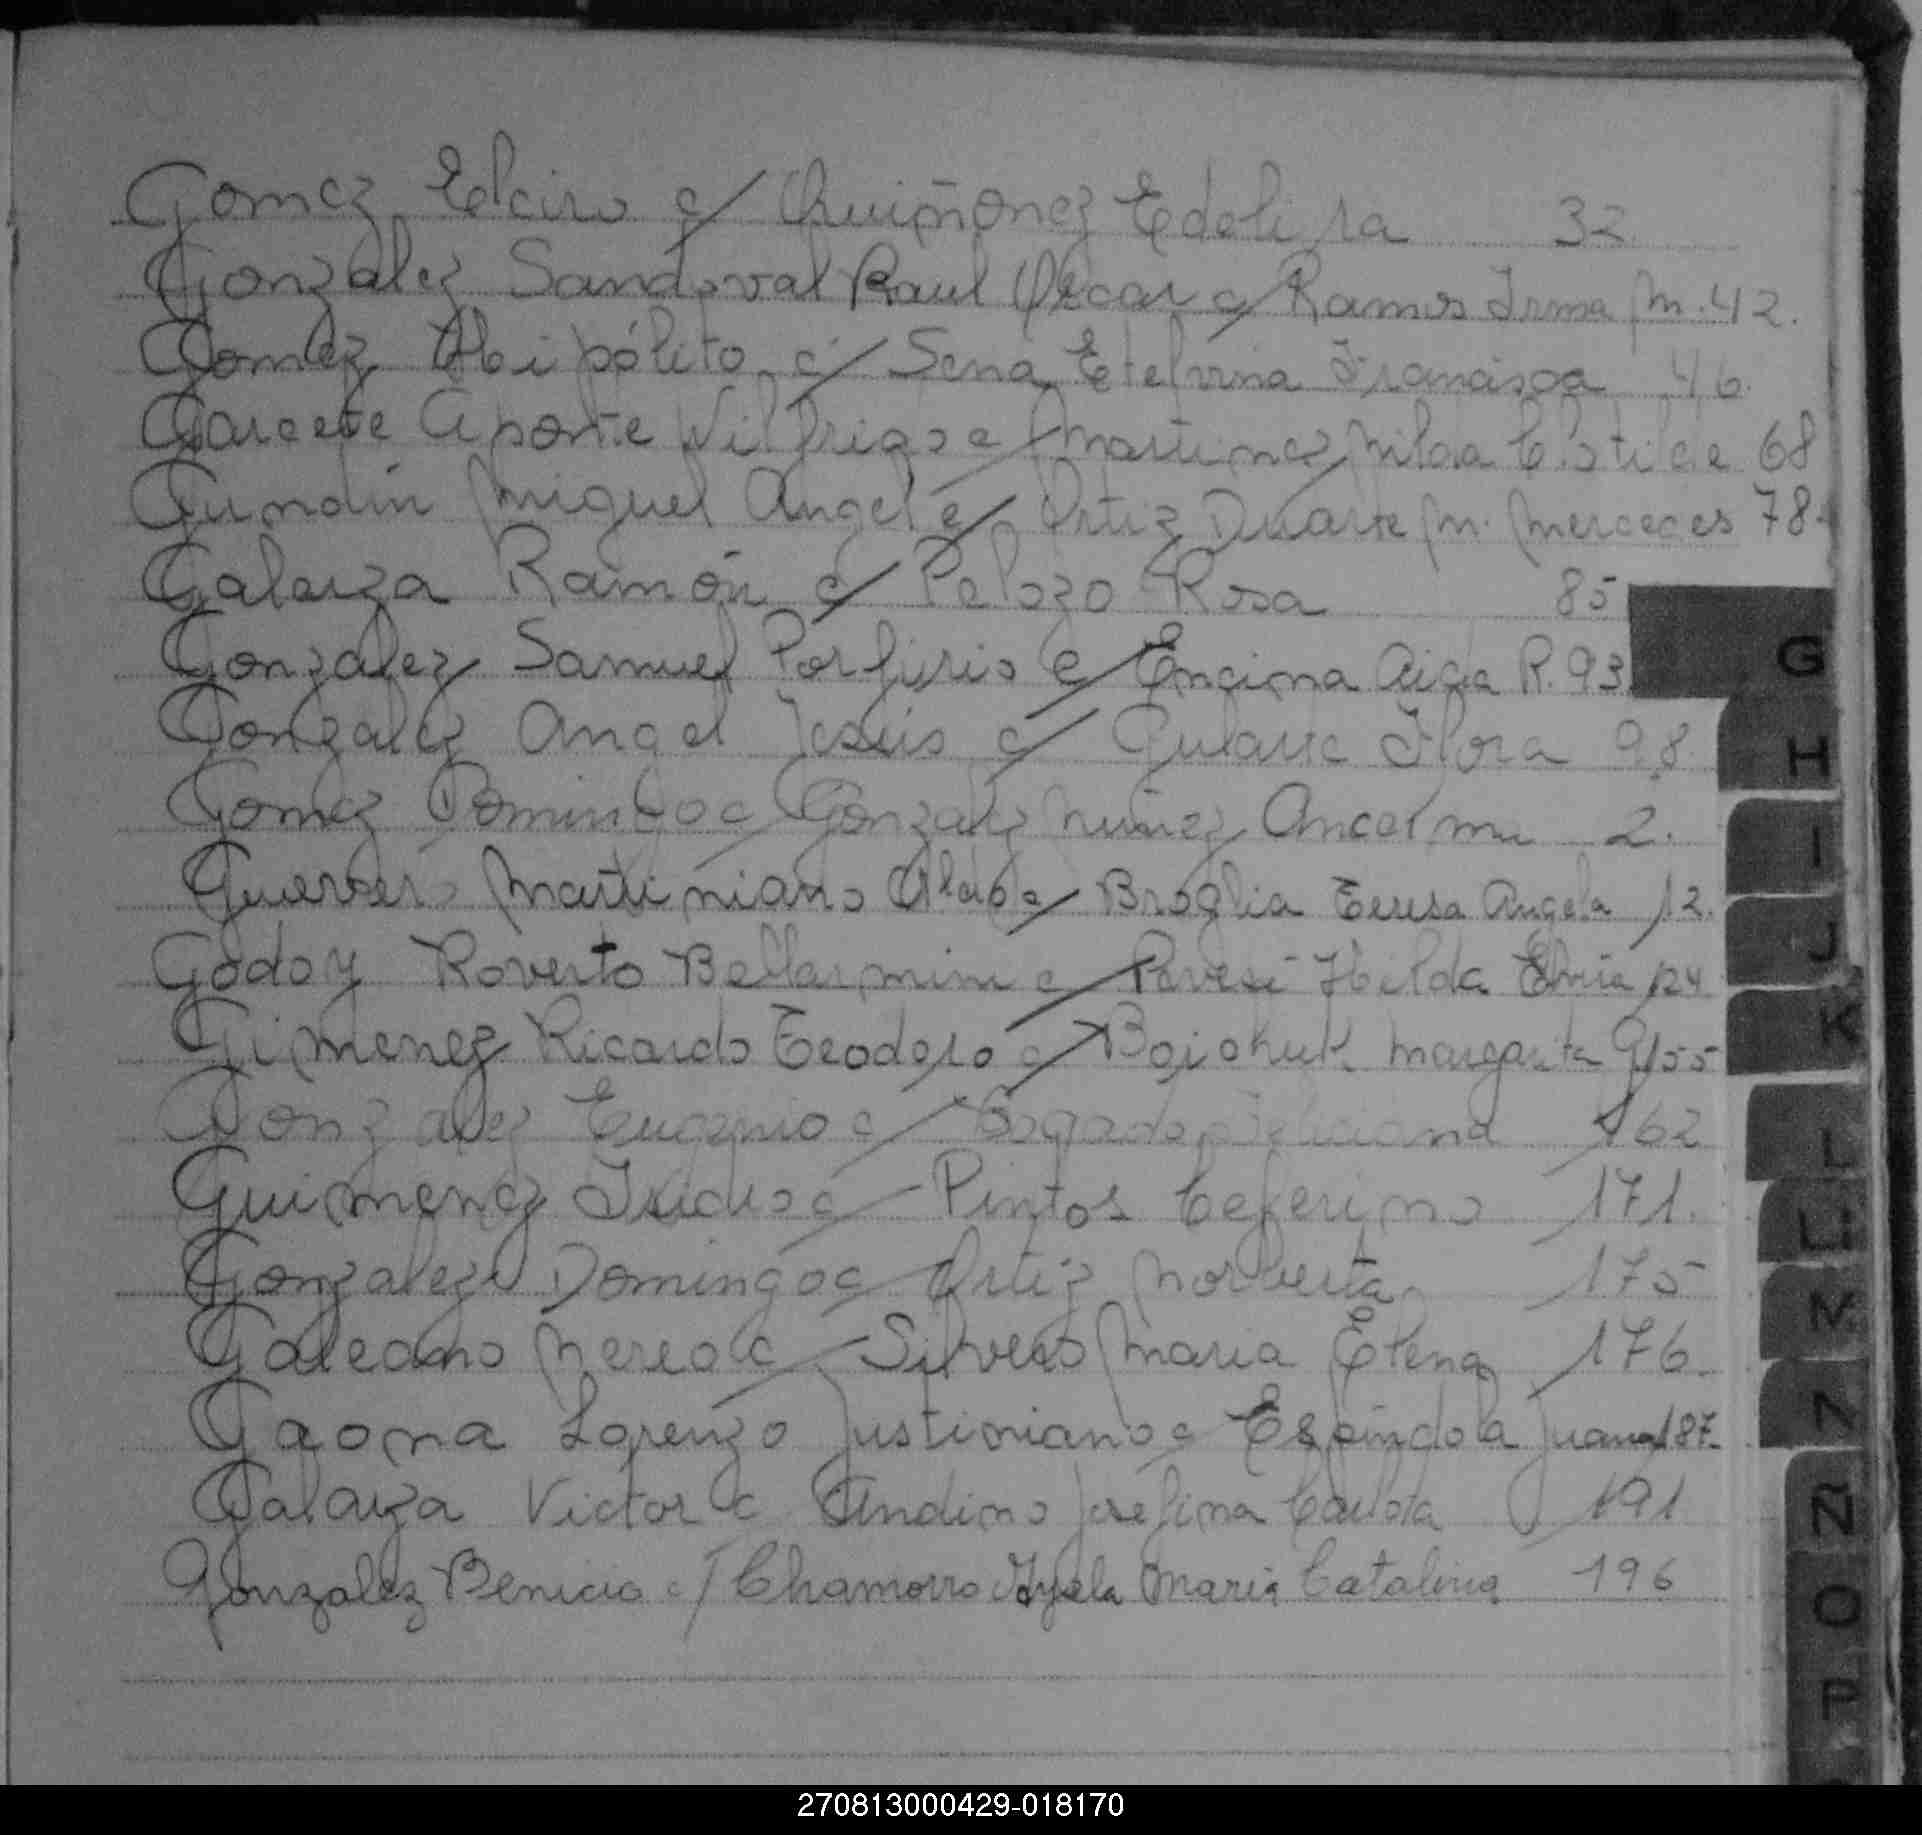 Gomez Elciro c/ Quiñonez Edelira 32
Gonzalez Sandoval Raul Oscar c/ Ramos Irma M. 42.
Gomez Hipólito c/ Sena Etelvina Francisca 46.
Garcete Aponte Wilfrido c/ Martinez Nilda Clotilde 68
Gundin Miguel Angel c/ Ortiz Duarte M. Mercedes 78.
Galarza Ramón c/ Pelozo Rosa 85
Gonzalez Samuel Porfirio c/ Encina Aida R. 93
Gonzalez Angel Jesús c/ Gularte Flora 98.
Gomez Domingo c/ Gonzalez Nuñez Ancelma 2.
Guerrero Martiniano Aldo c/ Broglia Teresa Angela 12.
Godoy Roverto Bellarmini c/ Pavesi Hilda Elvia 124
Gimenez Ricardo Teodoro c/ Boichuk Margarita G 155
Gonzalez Eugenio c/ Bogado Feliciana 162
Guimenez Isidro c/ Pintos Ceferino 171.
Gonzalez Domingo c/ Ortiz Norverta 175
Galeano Nereo c/ Silvero Maria Elena 176.
Gaona Lorenzo Justiniano c/ Espíndola Juana 187.
Galarza Victor c/ Andino Josefina Carlota 191
Gonzalez Benicio c/ Chamorro Ayala Maria Catalina 196
G
H
I
J
K
L
Ll
M
N
Ñ
O
P
270813000429-018170